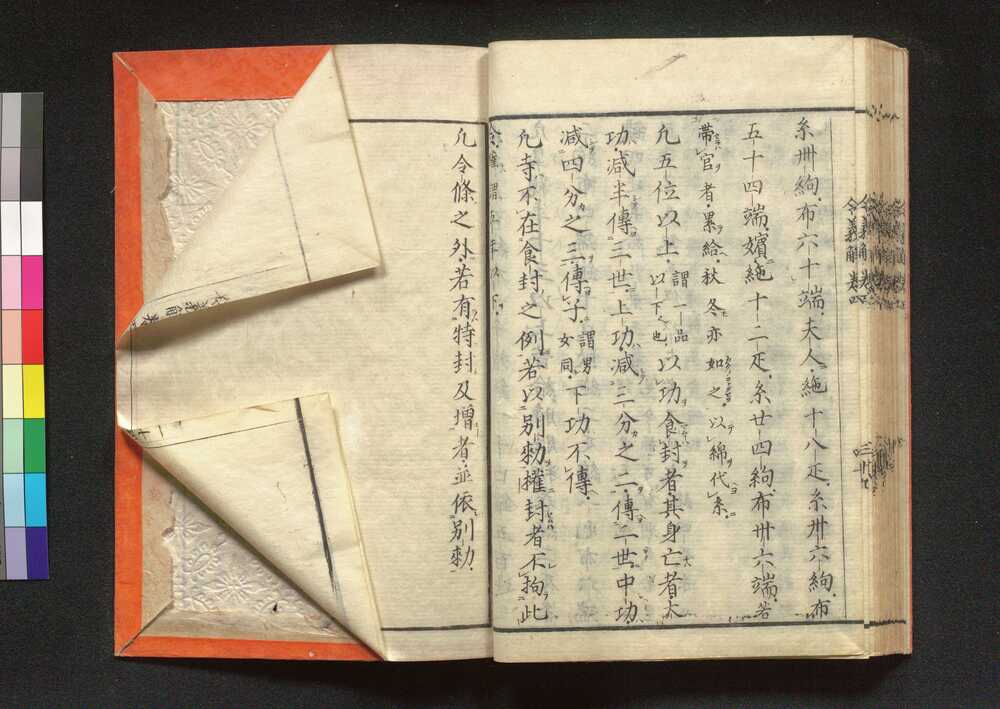 糸卅絇布六十端夫人絁十八疋糸卅六絇布
五十四端嬪絁十二疋糸廿四絇布卅六端若
帯官者累給秋冬亦如之以綿代糸
凡五位以上謂一品以下也以功食封者其身亡者大
功減半傳三世上功減三分之二傳二世中功
減四分之三傳子謂男女同下功不傳
凡寺不在食封之例若以別勅權封者不拘此
凡令條之外若有特封及増者並依別勅
令義解 巻四